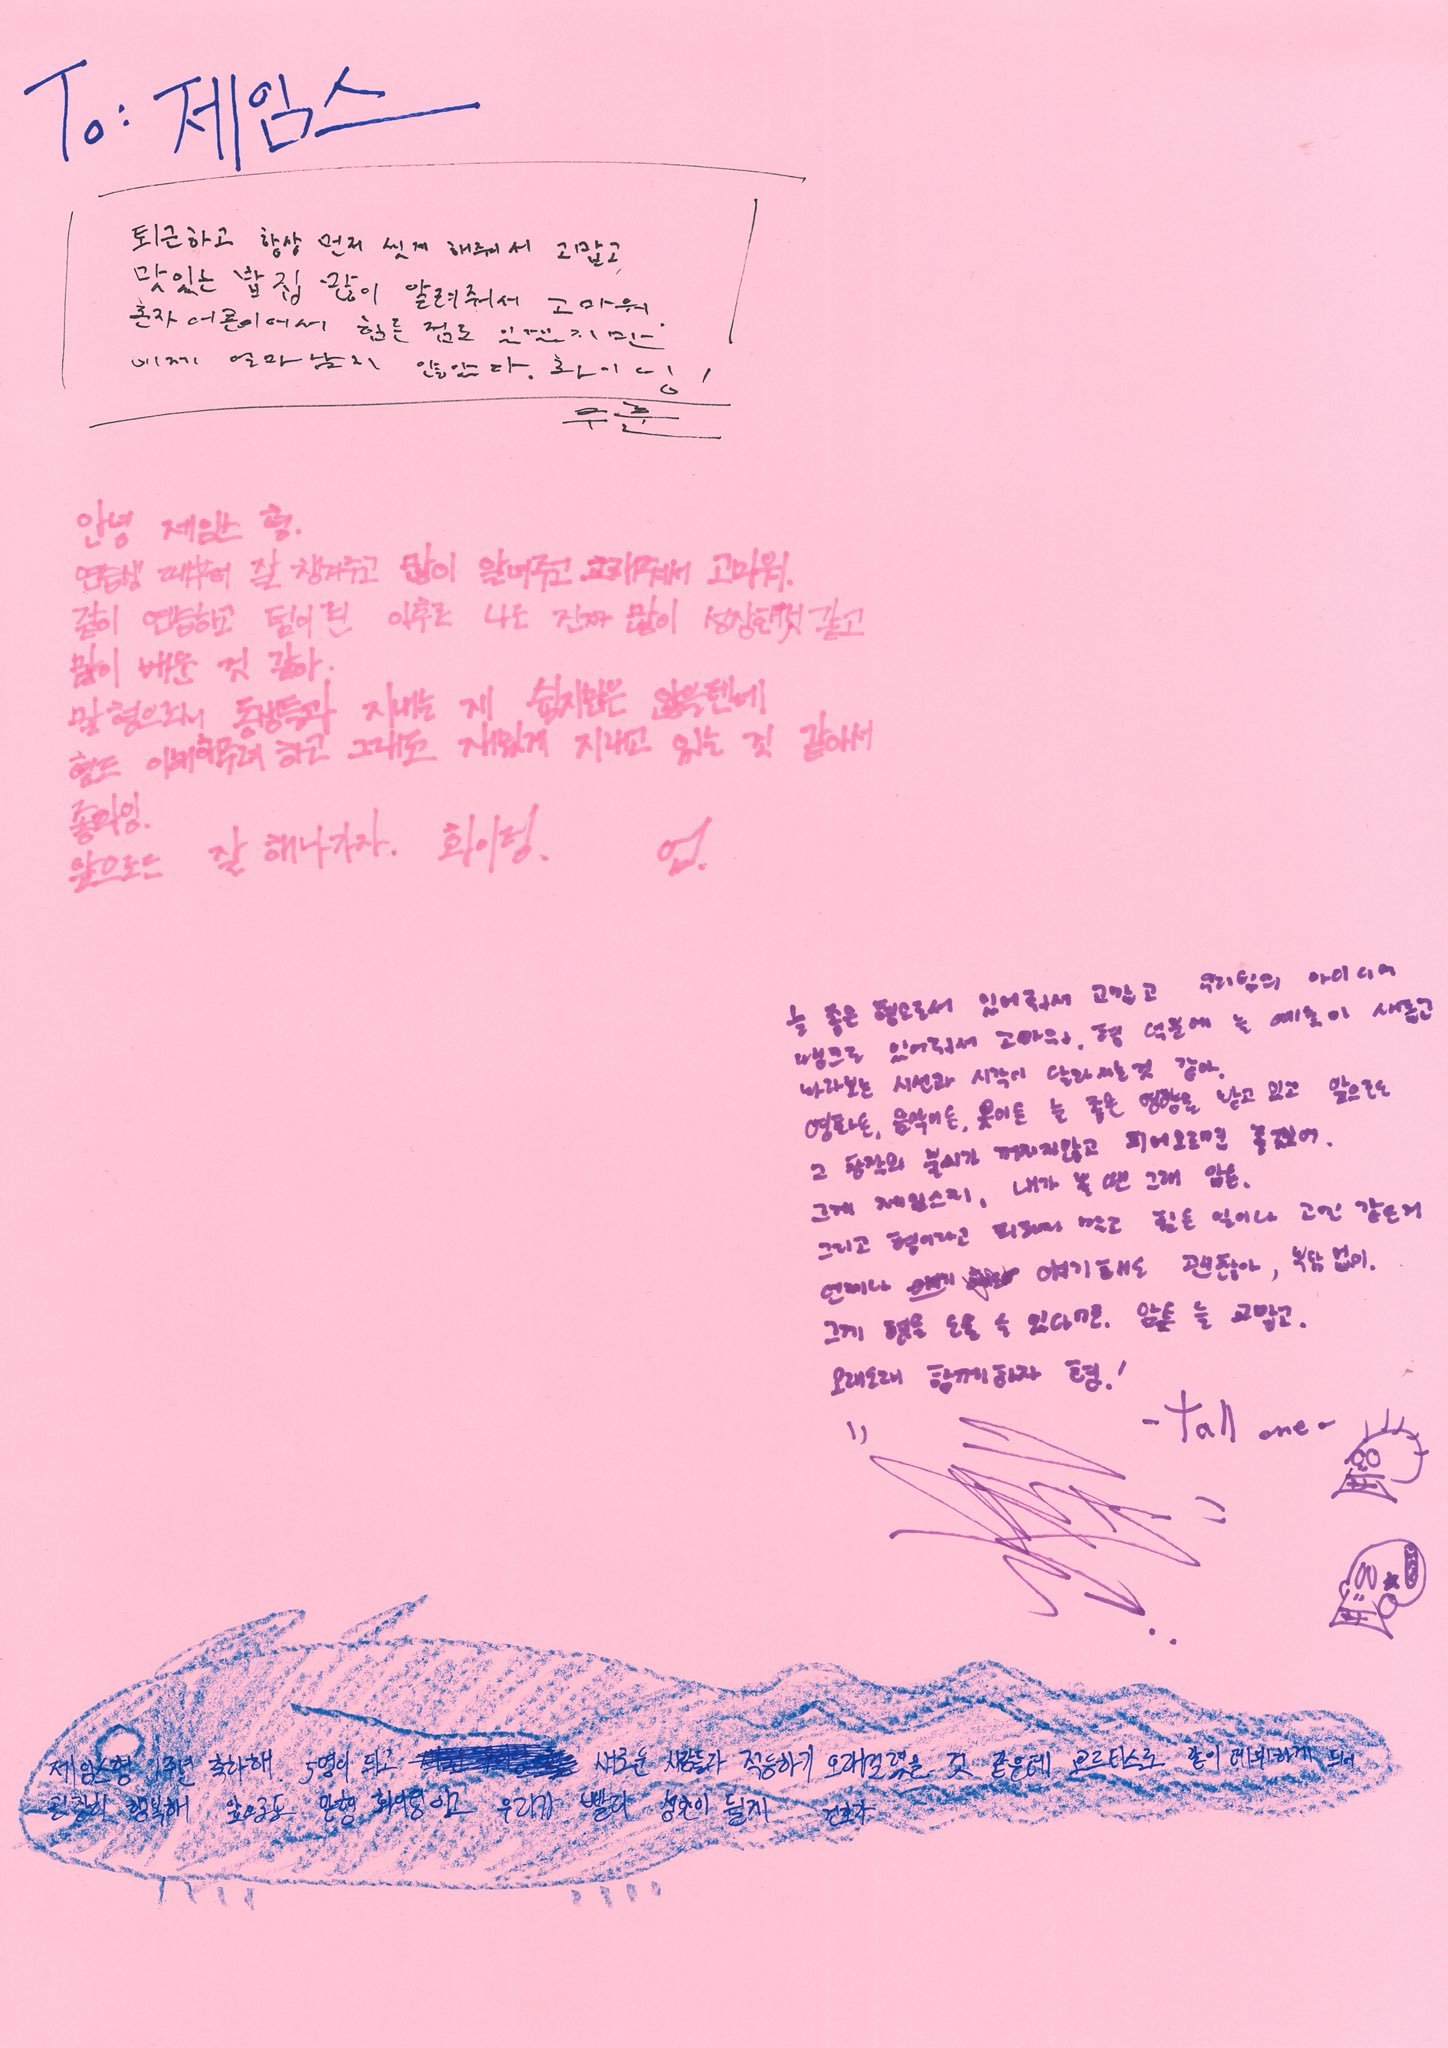 To: 제임스
퇴근하고 항상 먼저 씻게 해줘서 고맙고
맛있는 밥집 많이 알려줘서 고마워.
혼자 어른이어서 힘든 점도 있겠지만
이제 얼마 남지 않았다. 화이팅!
주훈
안녕 제임스 형.
연습생 때부터 잘 챙겨주고 많이 알려주고 도와줘서 고마워.
같이 연습하고 팀이 된 이후로 나도 진짜 많이 성장한 것 같고
많이 배운 것 같아.
맏형으로서 동생들과 지내는 게 쉽지만은 않을텐데
형도 이해해주려 하고 그래도 재밌게 지내고 있는 것 같아서
좋아잉.
앞으로도 잘 해나가자. 화이팅.
늘 좋은 형으로서 있어줘서 고맙고 우리팀의 아이디어
뱅크로 있어줘서 고마워. 형 덕분에 늘 예술이 새롭고
바라보는 시선과 시각이 달라지는것 같아.
영화든, 음악이든, 옷이든 늘 좋은 영향을 받고 있고 앞으로도
그 창작의 불씨가 꺼지지않고 피어오르면 좋겠어.
그게 제임스지, 내가 볼 땐 그래 암튼.
그리고 형이라고 쪼 힘든 일이나 고민 같은거
언제나 얘기해도 괜찮아, 부담 없이.
그게 형을 도울 수 있다면. 암튼 늘 고맙고.
오래오래 함께하자 형!
-Tall one-
제임스형 1주년 축하해 5명이 되고 새로운 사람들과 적응하기 오래걸렸을 것 같은데 코르티스로 같이 데뷔하게 되어
굉장히 행복해 앞으로도 맏형 화이팅이고 우리가 빨리 성인이 될게 건호가